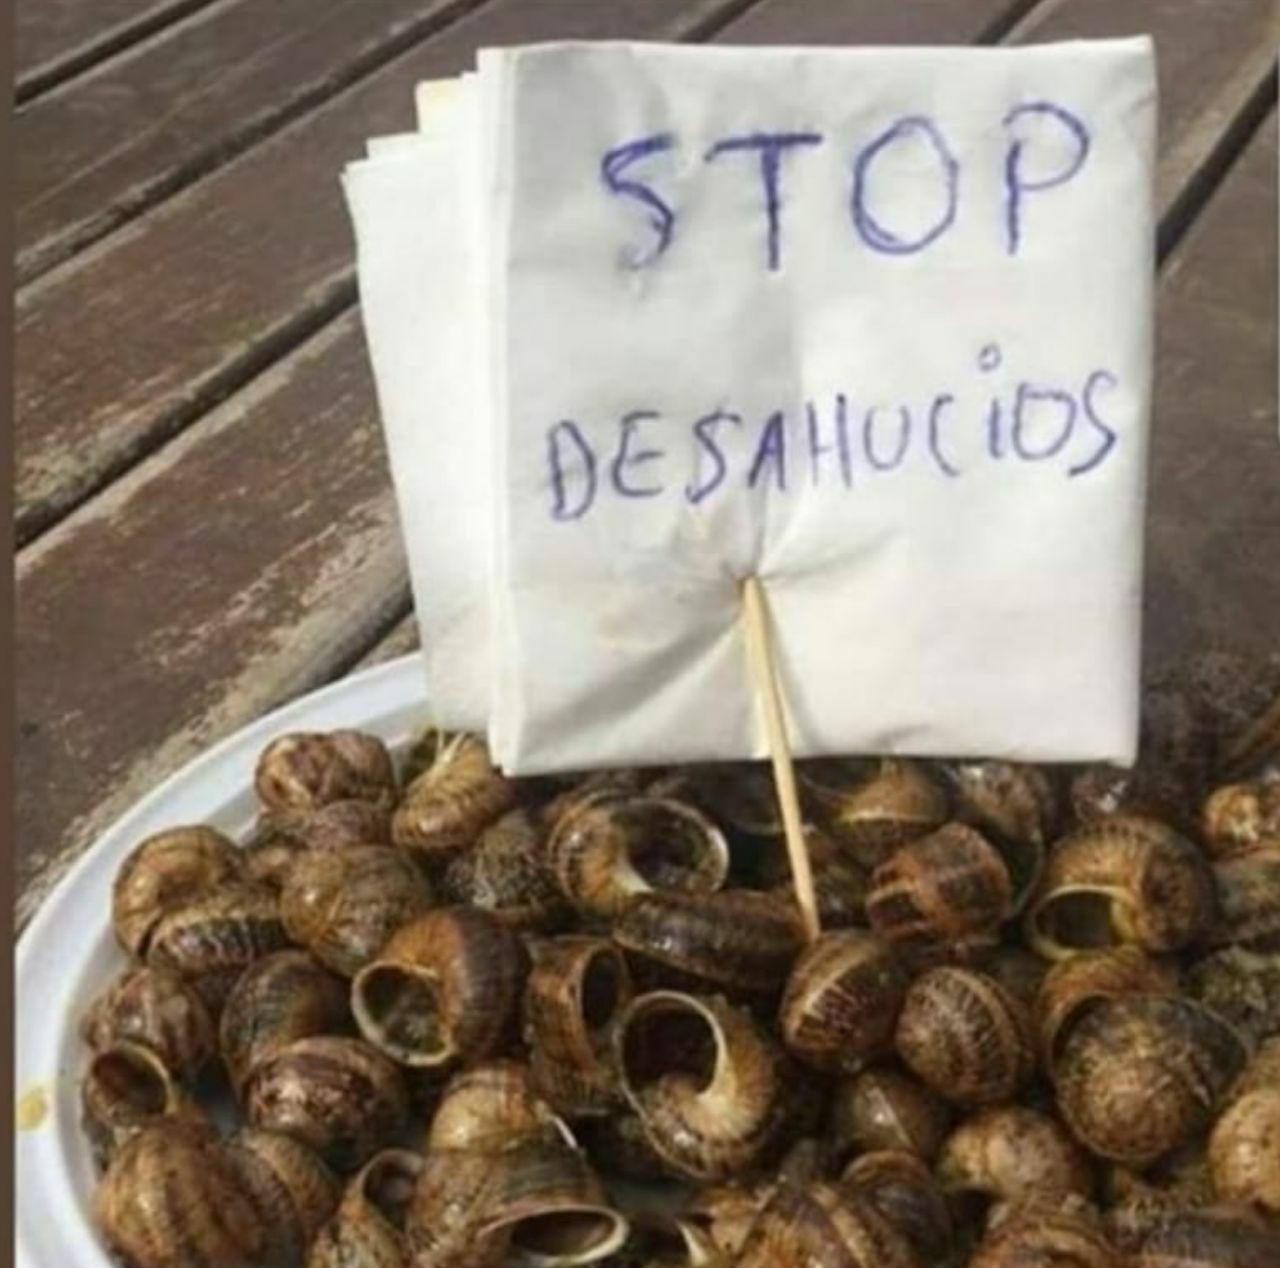 STOP
DESAHUCiOS